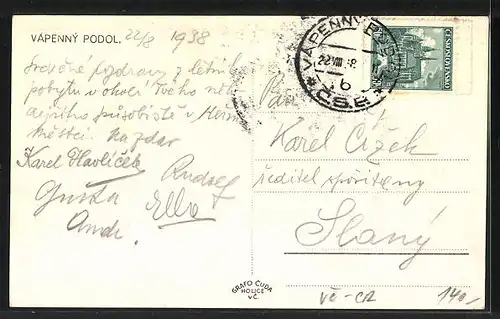 VÁPENNÝ PODOL. 22/8 1938
Srdečné pozdravy z letního
pobytu v okolí Tvého
působiště v Heřm.
městci
Nazdar
Karel Havlíček
Rudolf
Gusta
Ella
VÁPENNÝ PODOL
22.VIII.38
6
* Č.S.R. *
ČESKOSLOVENSKO
Pan
Karel Čížek
ředitel spořitelny
Slaný
GRAFO ČUDA
HOLICE
V.Č.
VČ-CR
140,-